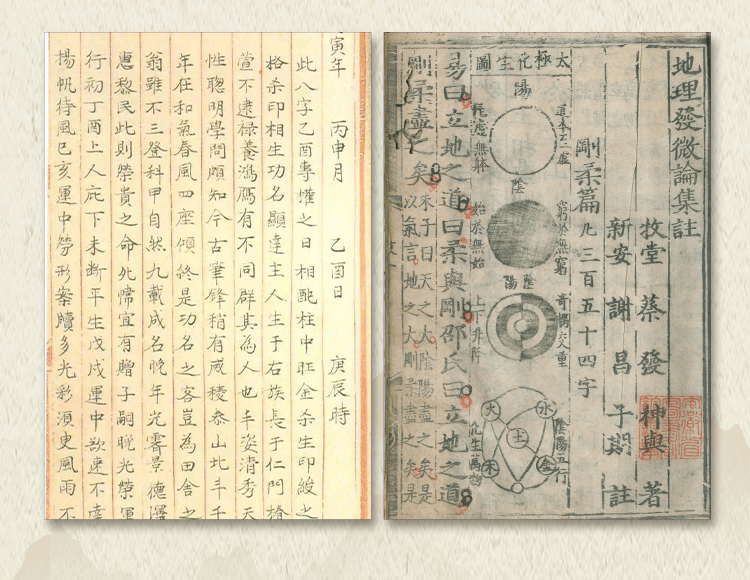 寅年 丙申月 乙酉日 庚辰時
此八字乙酉專權之日相配柱中旺金杀生印綬之
格杀印相生功名顯達主人生于右族長于仁門椿
萱不逮祿養鴻鴈有不同群其為人也丰姿清秀天
性聰明學問頗知今古筆鋒稍有威稜泰山北斗千
年在和氣春風四座傾終是功名之客豈為田舍之
翁雖不三登科甲自然九載成名晚年光霽景德澤
惠黎民此則榮貴之命也宜有贈子嗣晚光榮運
行初丁酉上人庇下未斷平生戊戌運中欲速不達
揚帆待風己亥運中勞形案牘多光彩須更風雨不
地理發微論集註
牧堂 蔡發 神與 著
新安 謝昌 子期 註
剛柔篇 凡三百五十四字
太極化生圖
陽
陰
陰陽
陰陽五行
化生萬物
窮於無窮
始於無始
上下升降
水
火
土
木
金
易曰立地之道曰柔與剛邵氏曰立地之道
剛柔盡之矣
朱子曰天之大陰陽盡之矣是
以氣言地之大剛柔盡之矣是